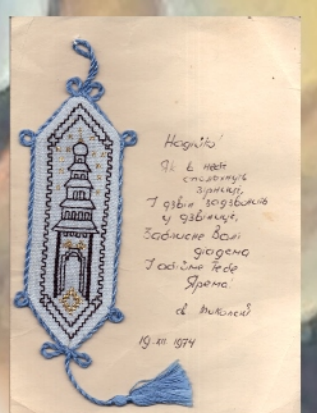 Надійко!
Як в небі
спалахнуть
зірниці,
І дзвін задзвонить
у дзвіниці,
Заблисне Волі
діадема
І обійме Тебе
Ярема!
св. Миколай
19. XII. 1974